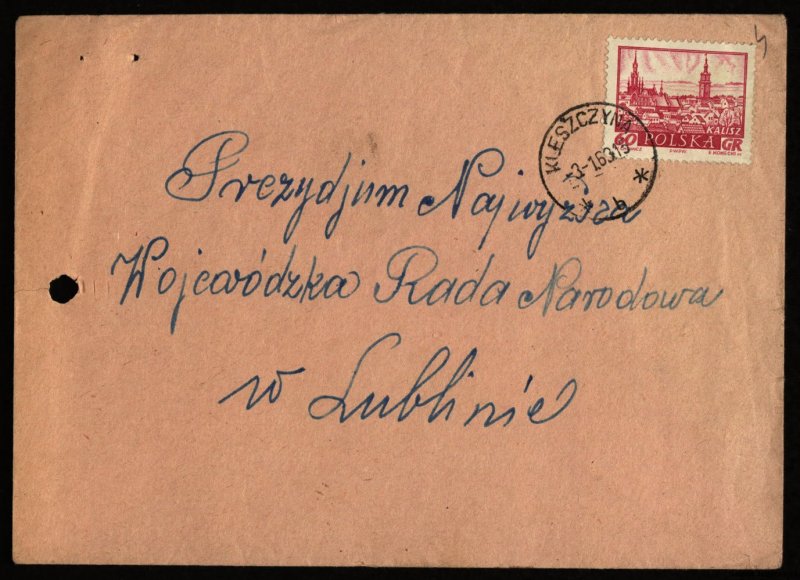 KALISZ
60 POLSKA GR
KLESZCZYNA
3-1.63.13
b
Prezydjum Najwyższa
Wojewódzka Rada Narodowa
w Lublinie